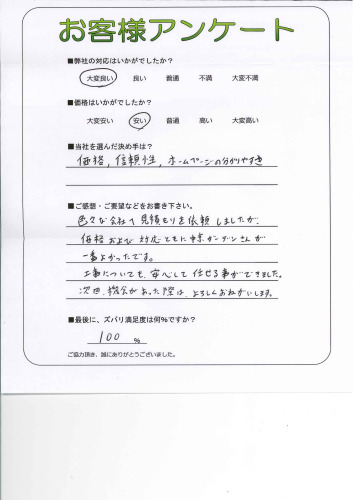 お客様アンケート
■弊社の対応はいかがでしたか?
大変良い 良い 普通 不満 大変不満
■価格はいかがでしたか?
大変安い 安い 普通 高い 大変高い
■当社を選んだ決め手は?
価格, 信頼性, ホームページの分かりやすさ
■ご感想・ご要望などをお書き下さい。
色々な会社へ見積もりを依頼しましたが、
価格および対応ともに ガーデンさんが
一番よかったです。
工事についても、安心して任せる事ができました。
次回、機会があった際は、よろしくおねがいします。
■最後に、ズバリ満足度は何%ですか?
100 %
ご協力頂き、誠にありがとうございました。